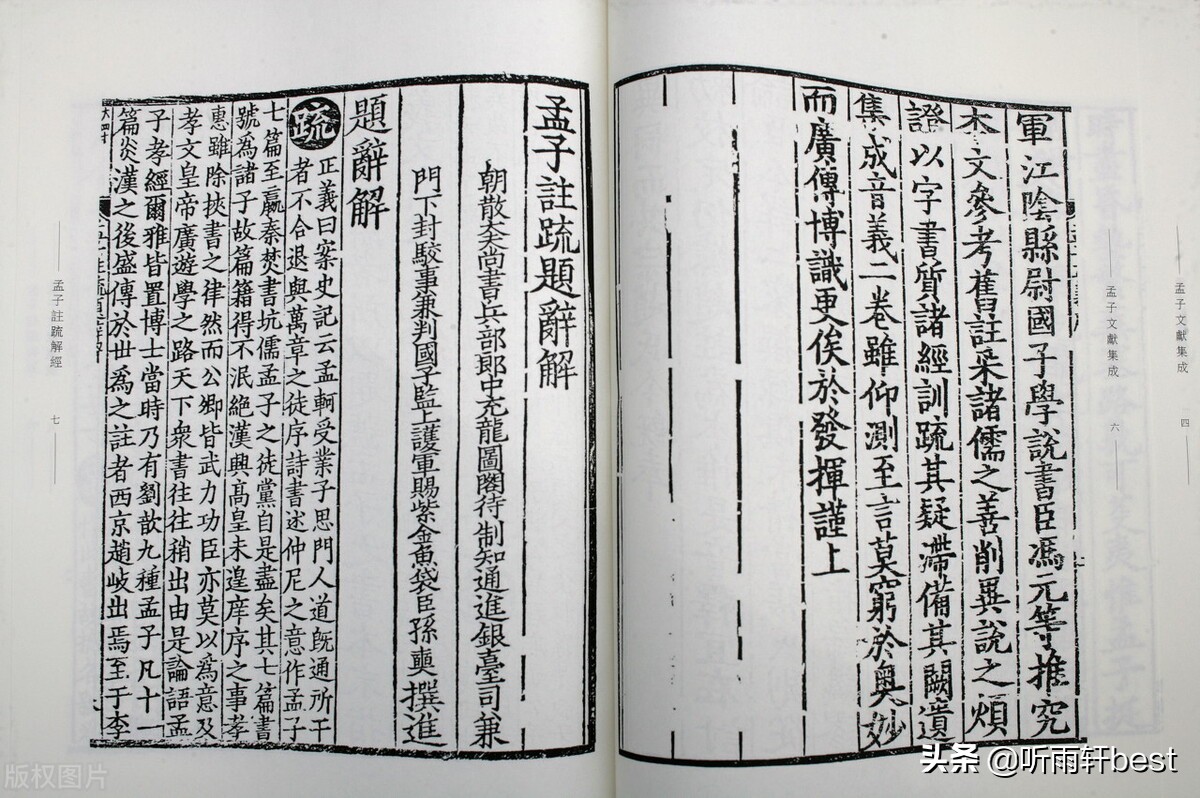 軍江陰縣尉國子學說書臣馮元等推究
本文參考舊註采諸儒之善削異說之煩
證以字書質諸經訓疏其疑滯備其闕遺
集成音義二卷雖仰測至言莫窮於奧妙
而廣傳博識更俟於發揮謹上
孟子註疏題辭解
朝散大夫尚書兵部郎中充龍圖閣待制知通進銀臺司兼
門下封駮事兼判國子監上護軍賜紫金魚袋臣孫奭撰進
題辭解
疏
正義曰案史記云孟軻受業子思門人道旣通所干
者不合退與萬章之徒序詩書述仲尼之意作孟子
七篇至嬴秦焚書坑儒孟子之徒黨自是盡矣其七篇書
號爲諸子故篇籍得不泯絕漢興高皇未遑庠序之事孝
惠雖除挾書之律然而公卿皆武力功臣亦莫以爲意及
孝文皇帝廣遊學之路天下衆書往往稍出由是論語孟
子孝經爾雅皆置博士當時乃有劉歆九種孟子凡十一
篇炎漢之後盛傳於世爲之註者西京趙岐出焉至于李
孟子文獻集成 四
孟子文獻集成 六
孟子註疏解經 七
版权图片
头条 @听雨轩best